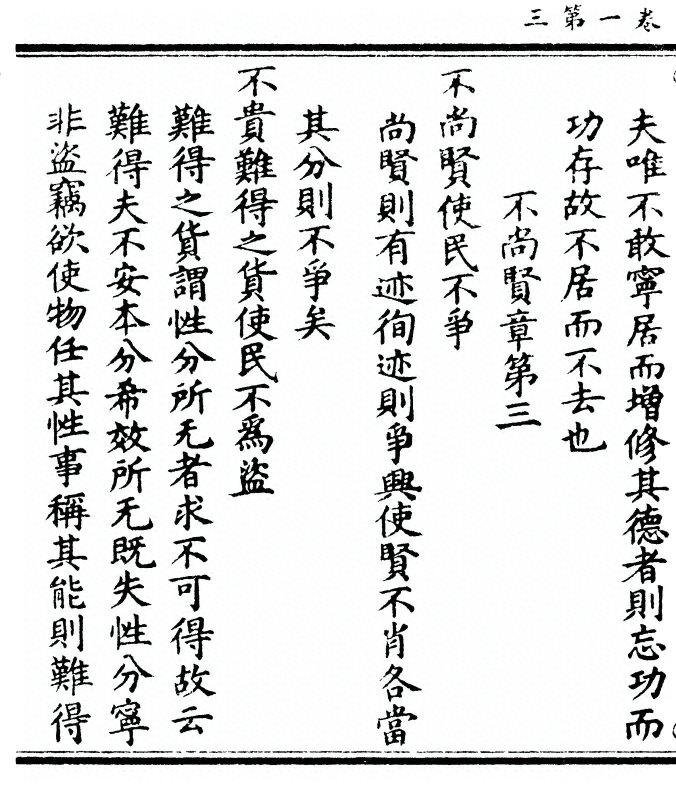 卷一第三
夫唯不敢寧居而增修其德者則忘功而
功存故不居而不去也
不尚賢章第三
不尚賢使民不爭
尚賢則有迹徇迹則爭興使賢不肖各當
其分則不爭矣
不貴難得之貨使民不爲盜
難得之貨謂性分所无者求不可得故云
難得夫不安本分希效所无既失性分寧
非盜竊欲使物任其性事稱其能則難得